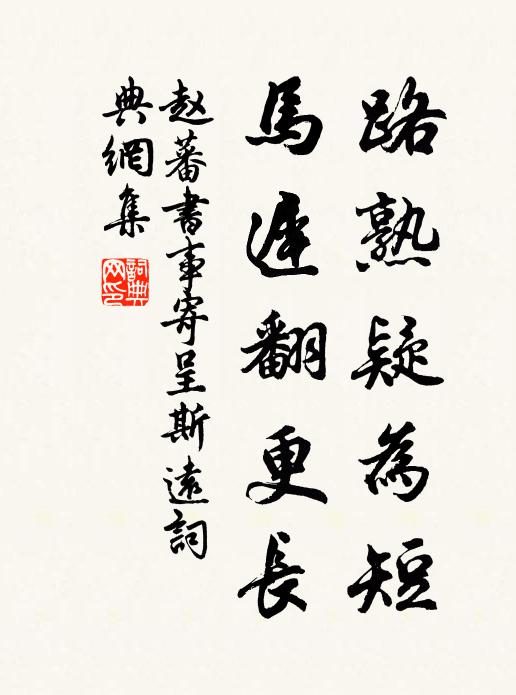 路熟疑為短
馬遲翻更長
赵蕃書事寄呈斯遠詞
典網集
詞典
网印